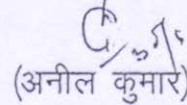 (अनील कुमार)